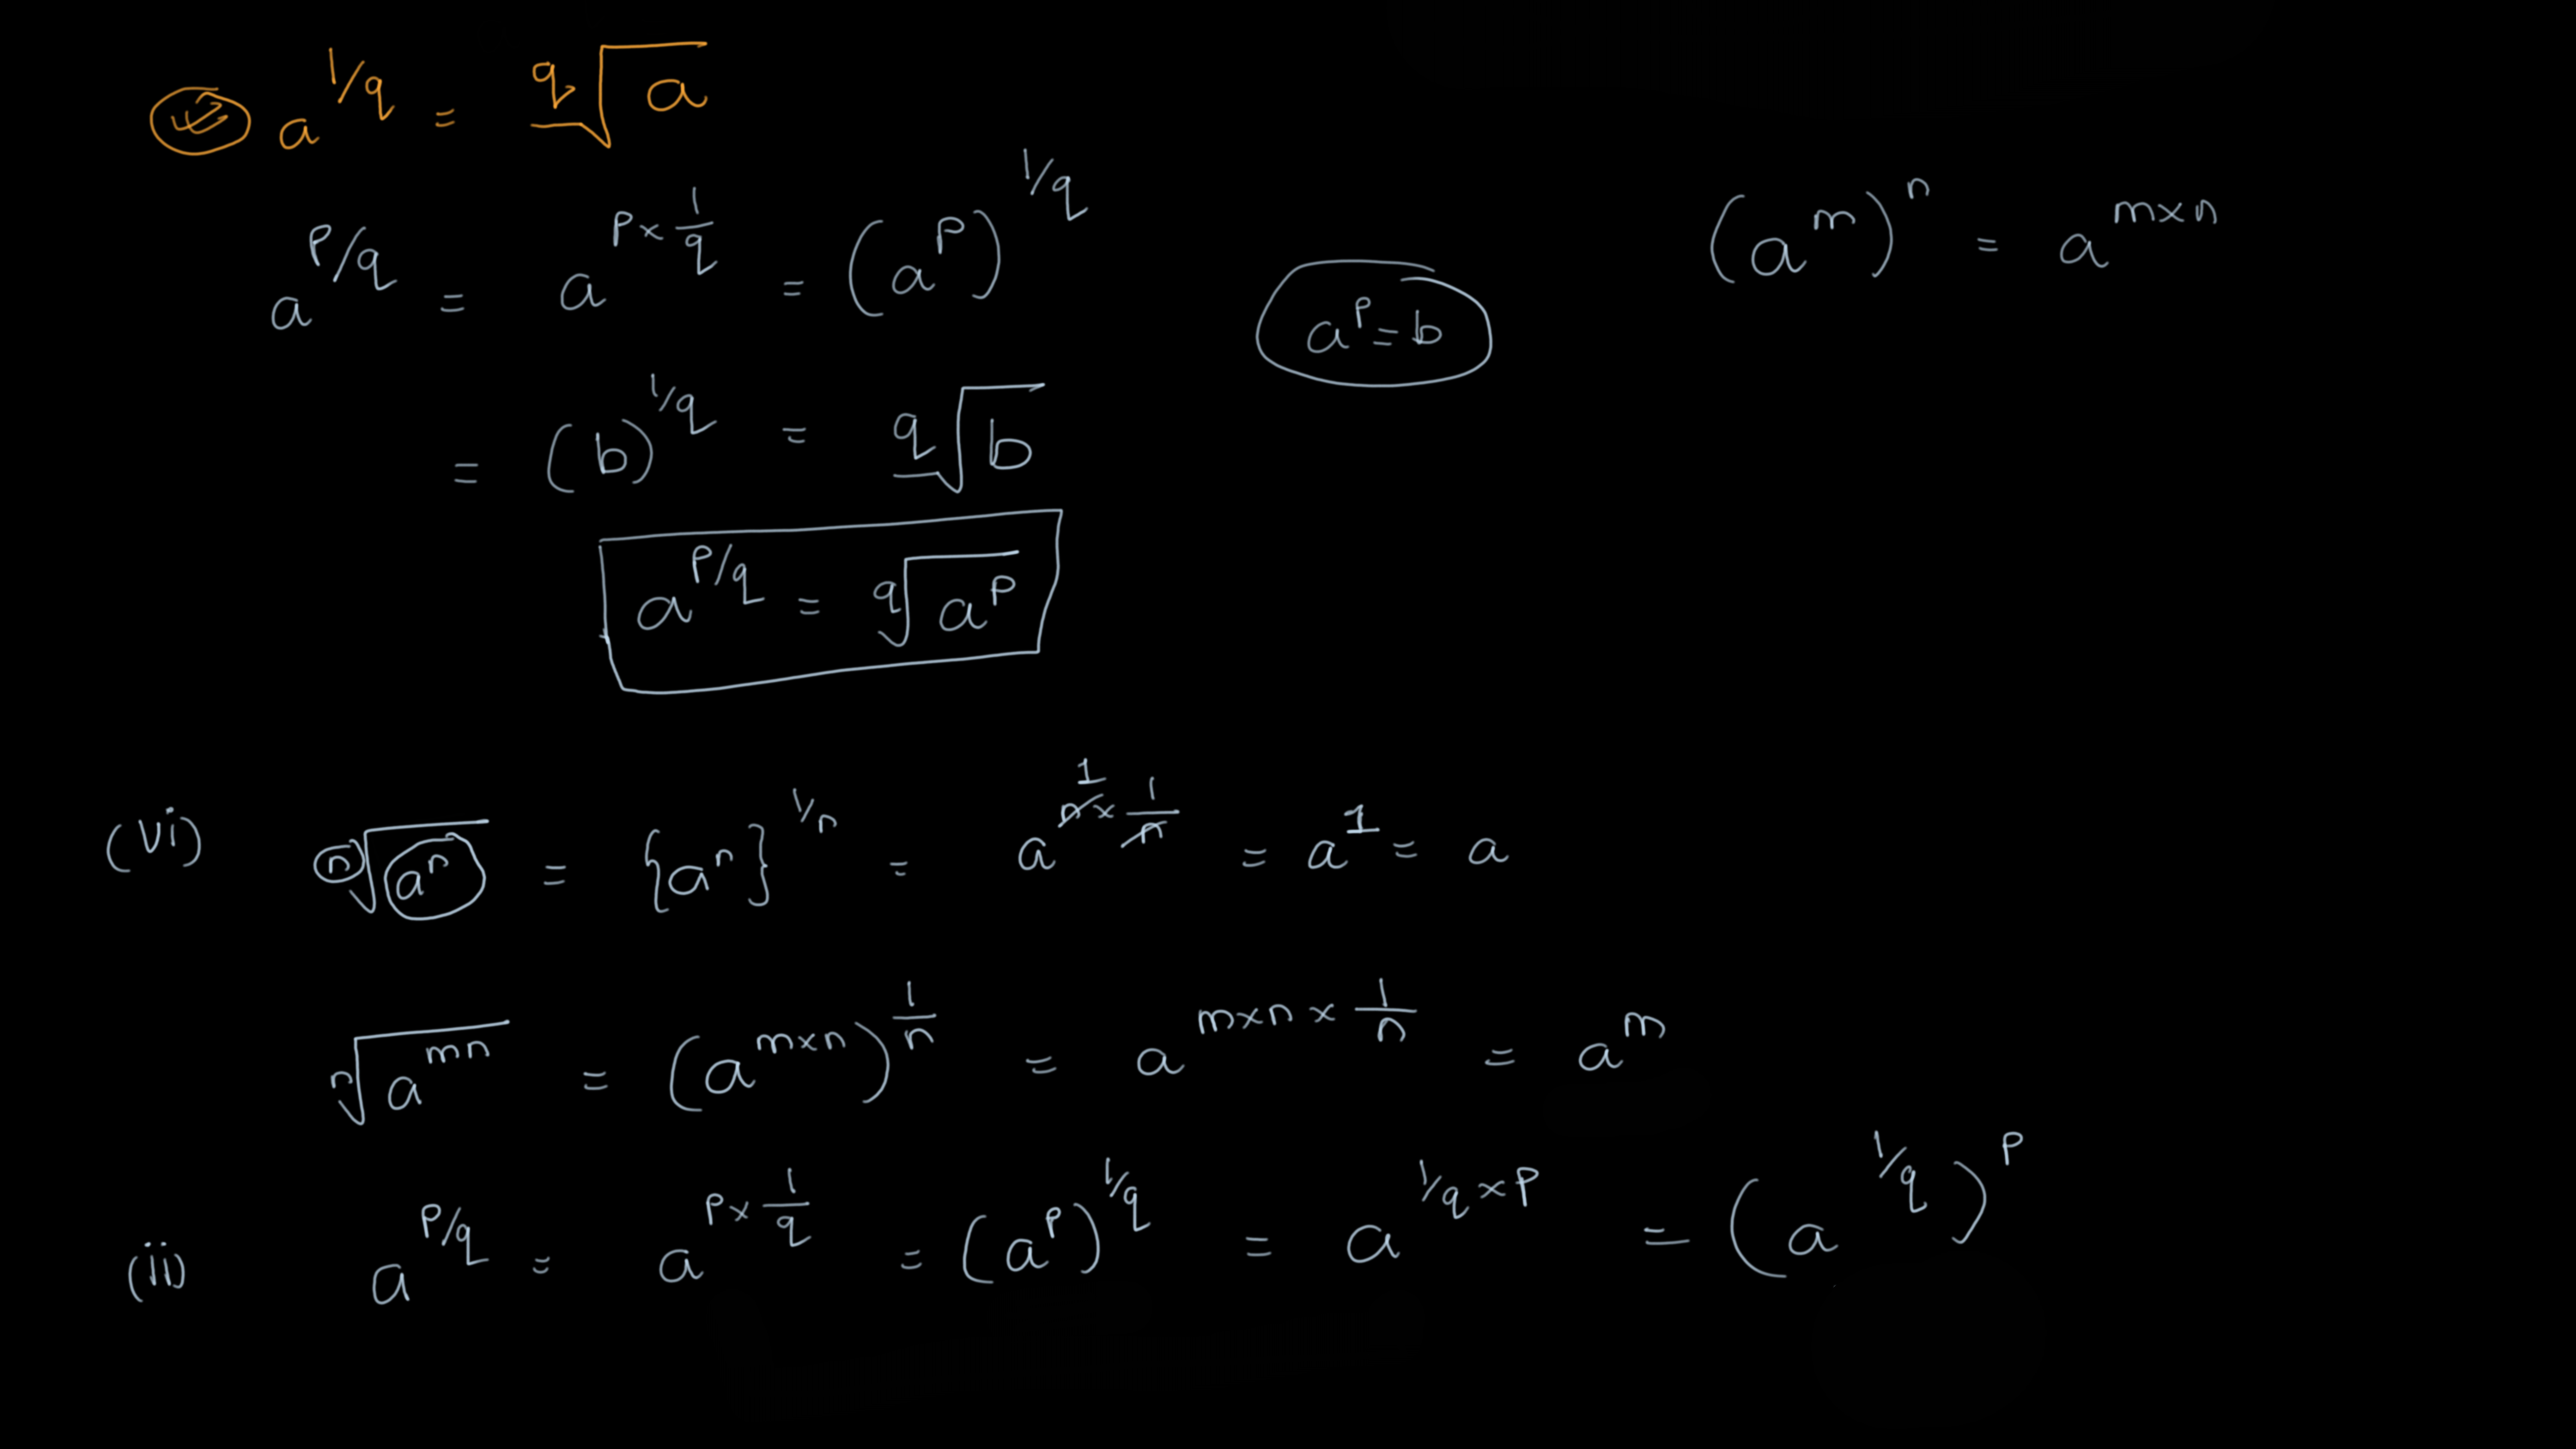 a^{1/q} = \sqrt[q]{a}
a^{p/q} = a^{p × \frac{1}{q}} = (a^p)^{1/q}
(a^m)^n = a^{m×n}
a^p = b
= (b)^{1/q} = \sqrt[q]{b}
a^{p/q} = \sqrt[q]{a^p}
(vi) \sqrt[n]{a^n} = {a^n}^{1/n} = a^{n × \frac{1}{n}} = a^1 = a
\sqrt[n]{a^{mn}} = (a^{m×n})^{\frac{1}{n}} = a^{m×n×\frac{1}{n}} = a^m
(ii) a^{p/q} = a^{p × \frac{1}{q}} = (a^p)^{1/q} = a^{1/q × p} = (a^{1/q})^p